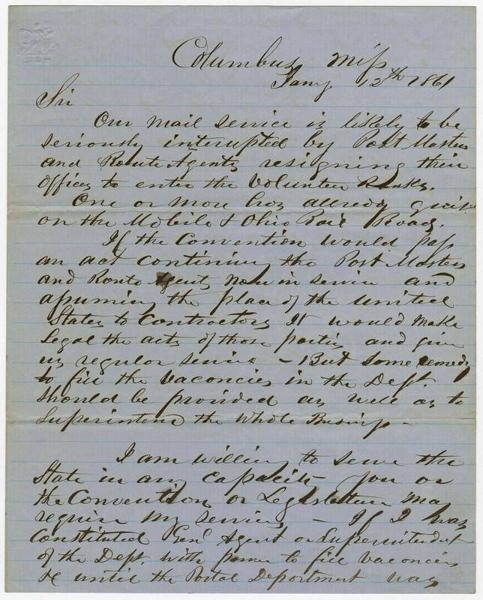 Columbus Miss
Jany. 12th 1861
Sir
Our mail service is likely to be
seriously interupted by Post Masters
and Route Agents resigning their
offices to enter the Volunteer Ranks.
One or more has allready
on the Mobile & Ohio Rail Road.
If the Convention would pass
an act continuing the Post Masters
and Route Agents now in service and
assuming the place of the United
States to Contractors It would make
Legal the acts of those parties and give
us regular service – But some remedy
to fill the vacancies in the Dept.
should be provided as well as to
Superintend the Whole Business –
I am willing to serve the
State in any capacity you or
the Convention or Legislature may
require my services – If I was
Constituted Genl Agent or Superintendent
of the Dept. with power to fill vacancies
&c until the Postal Department was